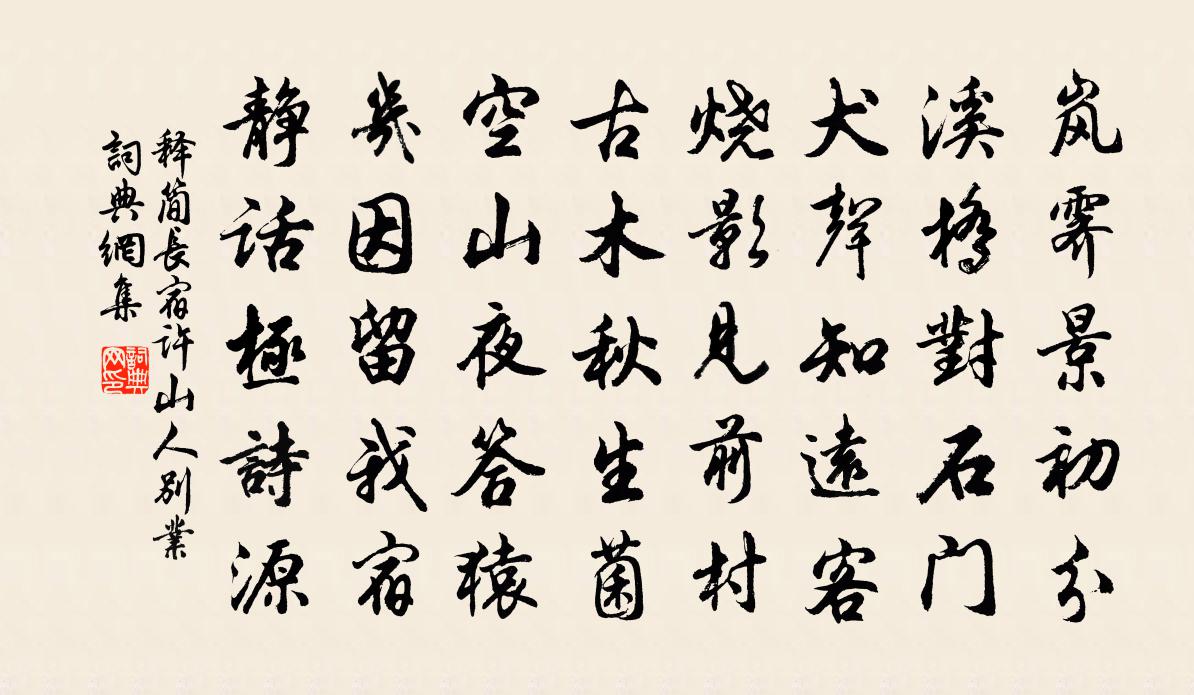 岚霁景初分
溪橋對石门
犬聲知遠客
烧影見前村
古木秋生菌
空山夜答猿
幾因留我宿
静话極詩源
释简長宿许山人别業
詞典網集
詞典网印